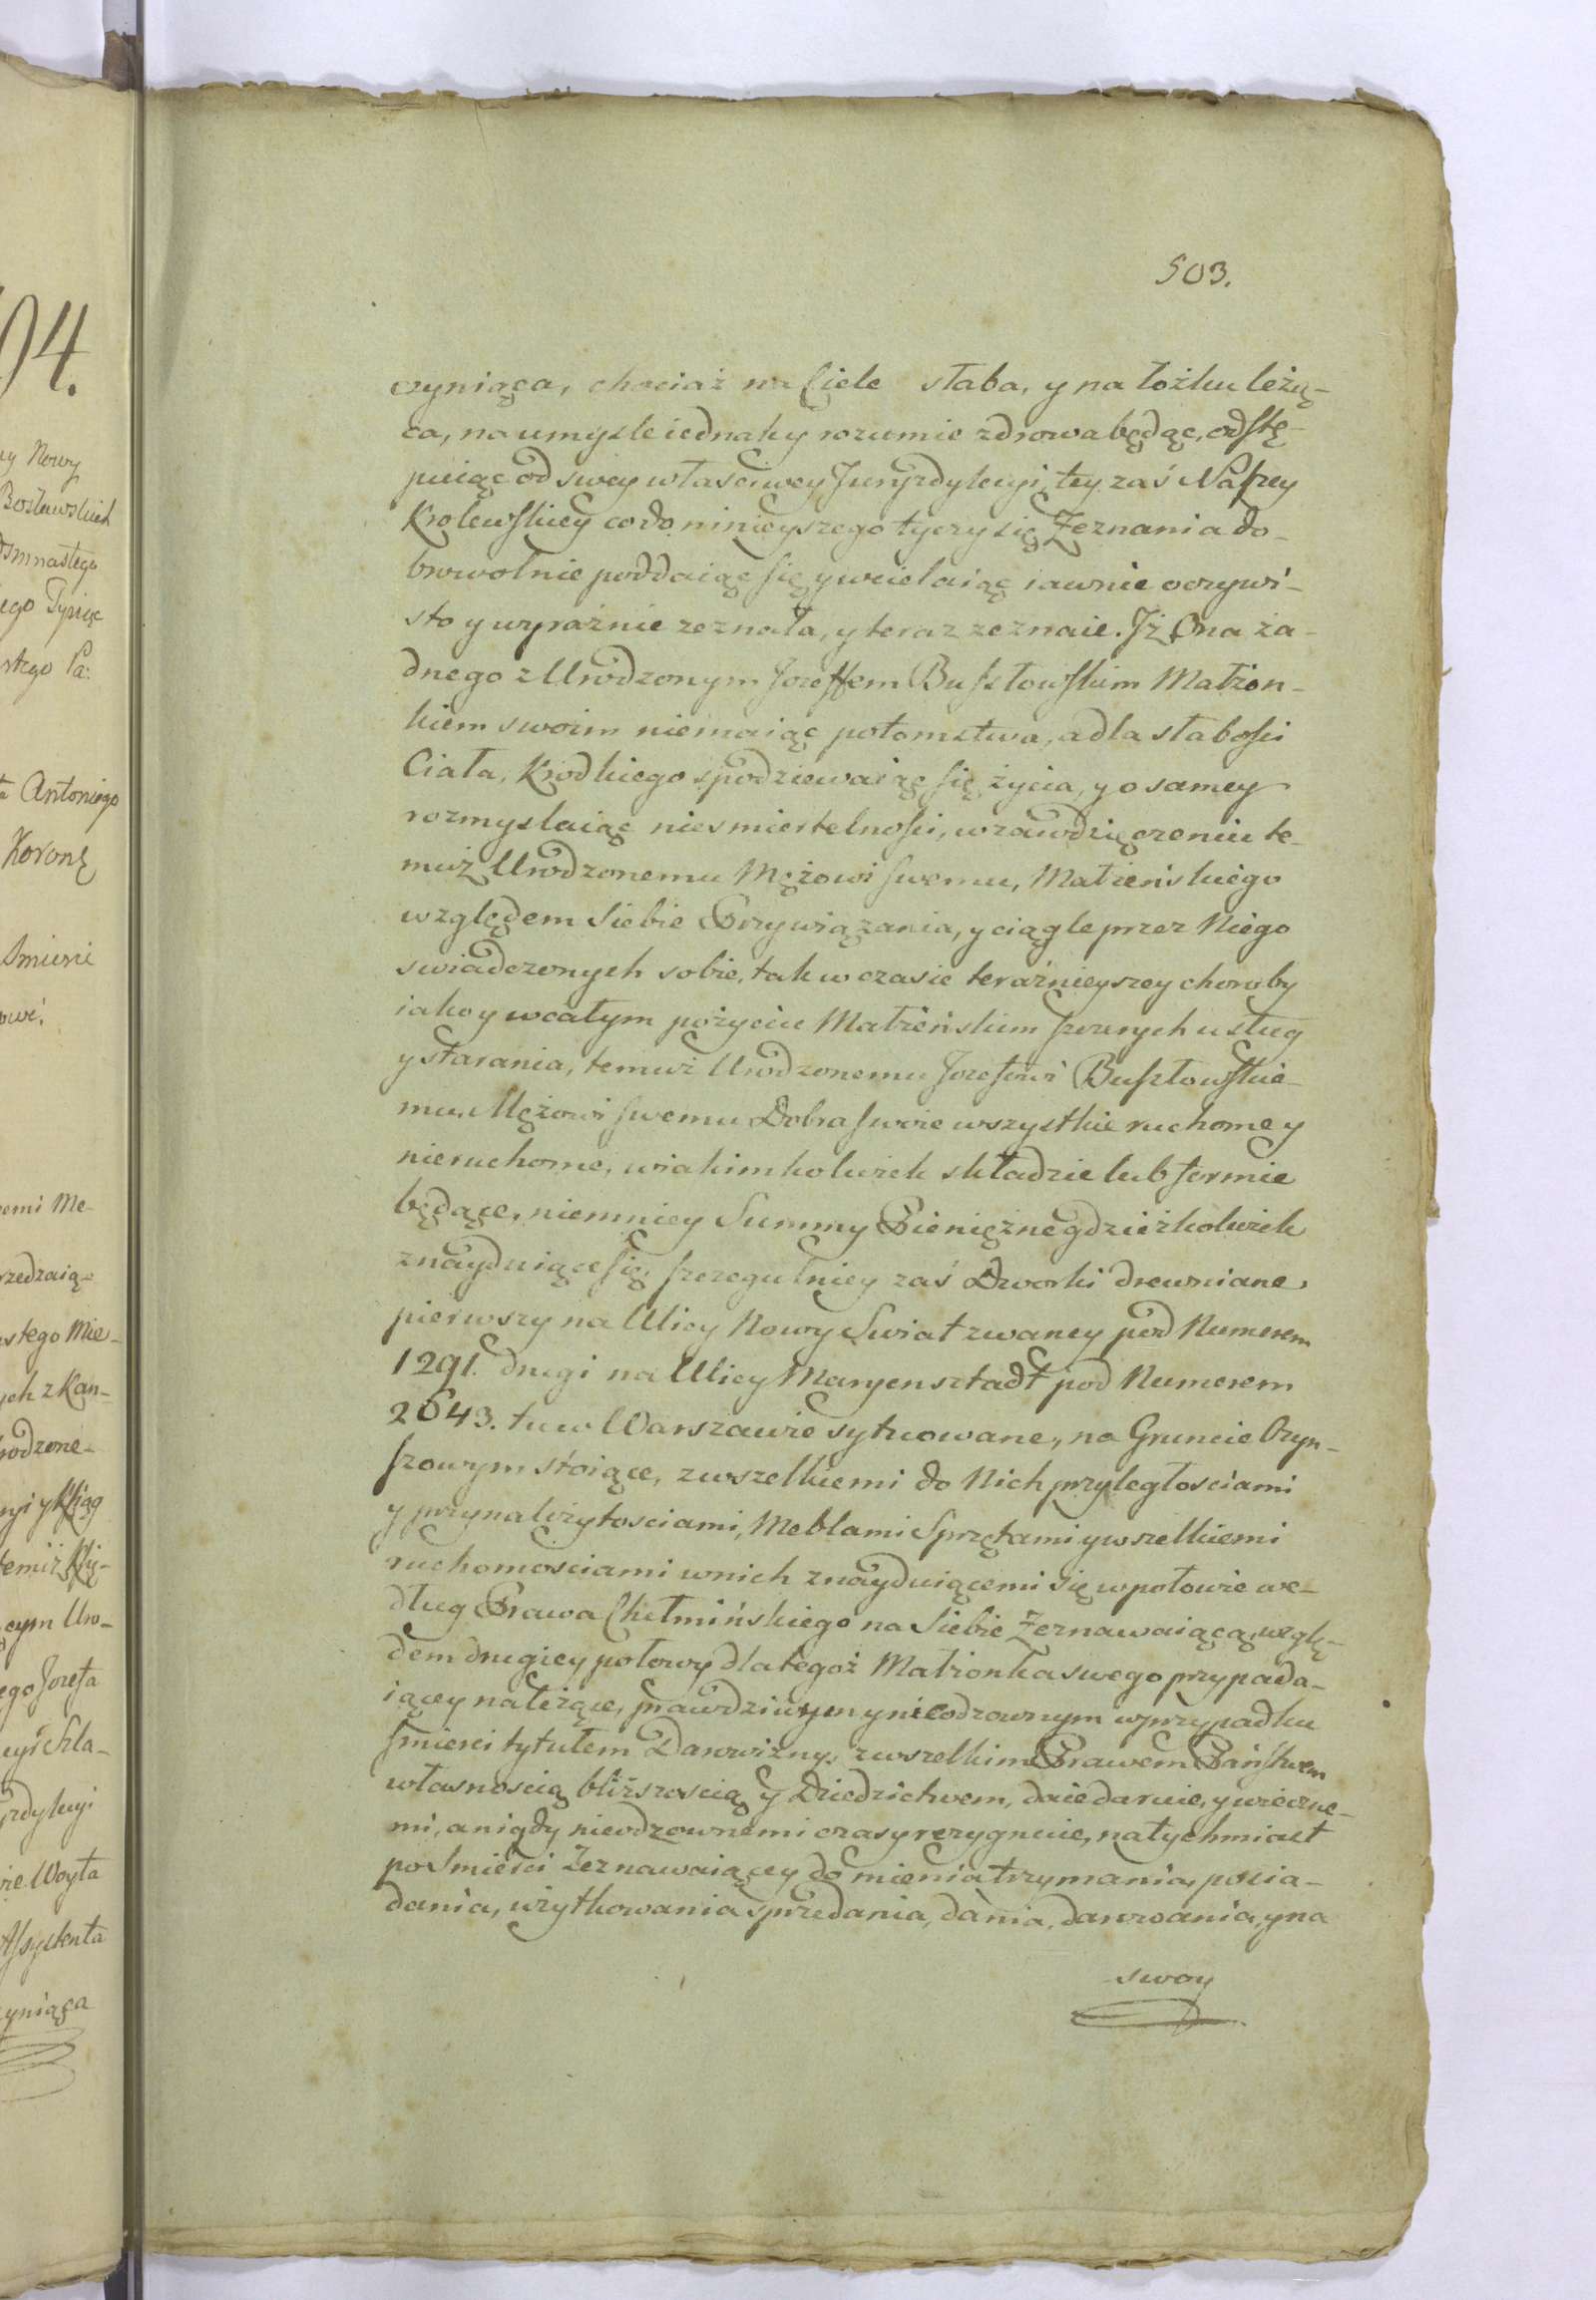 503.
czyniąca, chociaż na Ciele słaba, y na łożku leżą-
ca, na umysle iednak y rozumie zdrowa będąc, odstę-
puiąc od swey własciwey Juryzdykcyi, tey zaś Naszey
Krolewskiey co do ninieyszego tyczy się Zeznania do-
browolnie poddaiąc się y wcielaiąc iawnie oczywi-
sto y wyraźnie zeznała, y teraz zeznaie. Jż Ona ża-
dnego z Urodzonym Jozeffem Buszłowskim Małżon-
kiem swoim niemaiąc potomstwa, a dla słabości
Ciała, Krodkiego spodziewaiąc się życia, y o samey
rozmyslaiąc niesmiertelności, wzawdzięczeniu te-
muż Urodzonemu Mężowi swemu, Małżeńskiego
względem Siebie Przywiązania, y ciągle przez Niego
swiadczonych sobie, tak w czasie teraźnieyszey choroby
iako y wcałym pożyciu Małżeńskim szczerych usług
y starania, temuż Urodzonemu Jozefowi Buszłowskie-
mu, Mężowi swemu Dobra swoie wszystkie ruchome y
nieruchome, wiakimkolwiek składzie lub formie
będące, niemniey Summy Pieniężne gdzieżkolwiek
znayduiące się, szczegulniey zaś Dworki drewniane,
pierwszy na Ulicy Nowy Swiat zwaney pod Numerem
1291. drugi na Ulicy Maryensztadt pod Numerem
2643. tu w Warszawie sytuowane, na Gruncie Czyn-
szowym stoiące, zwszelkiemi do Nich przyległosciami
y przynależytosciami, Meblami Sprzętami y wszelkiemi
ruchomosciami wnich znayduiącemi się wpołowie we-
dług Prawa Chełmińskiego na Siebie Zeznawaiącą, wzglę-
dem drugiey połowy dla tegoż Małżonka swego przypada-
iącey należące, prawdziwym y nieodzownym wprzypadku
smierci tytułem Darowizny, zwszelkim Prawem Państwem
własnoscią bliższoscią y Dziedzictwem, daie daruie, y wieczne-
mi, a nigdy nieodzownemi czasy rezygnuie, natychmiast
po Smierci Zeznawaiącey do mienia trzymania, posia-
dania, użytkowania sprzedania, dania, darowania, y na
swoy
04.
Nowy
Antoniego
Koronę
Smierci
Me-
stego Mie-
ych z Kan-
Jozefa
Woyta
Assystenta